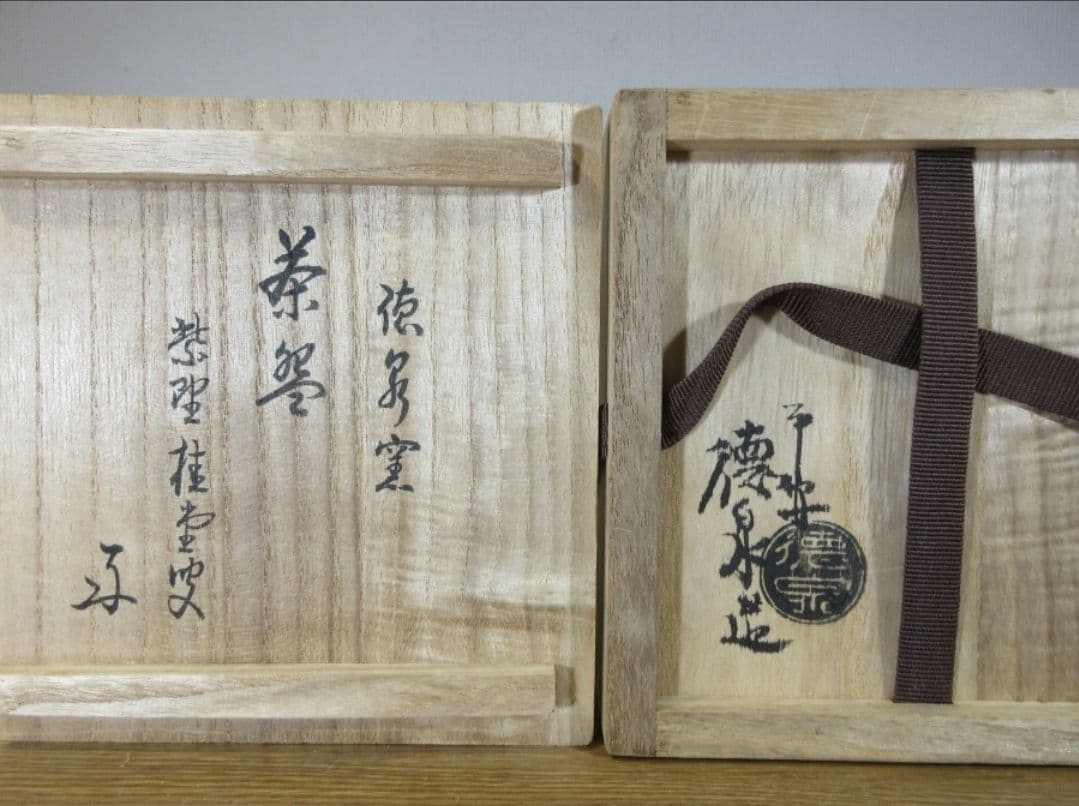 徳泉窯
茶盌
紫野桂堂叟
平安
德泉造